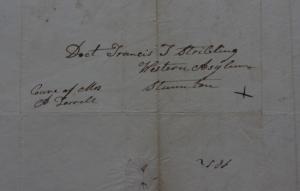 Doct Francis T Stribling
Western Asylum
Staunton
Care of Mrs
A Terrell